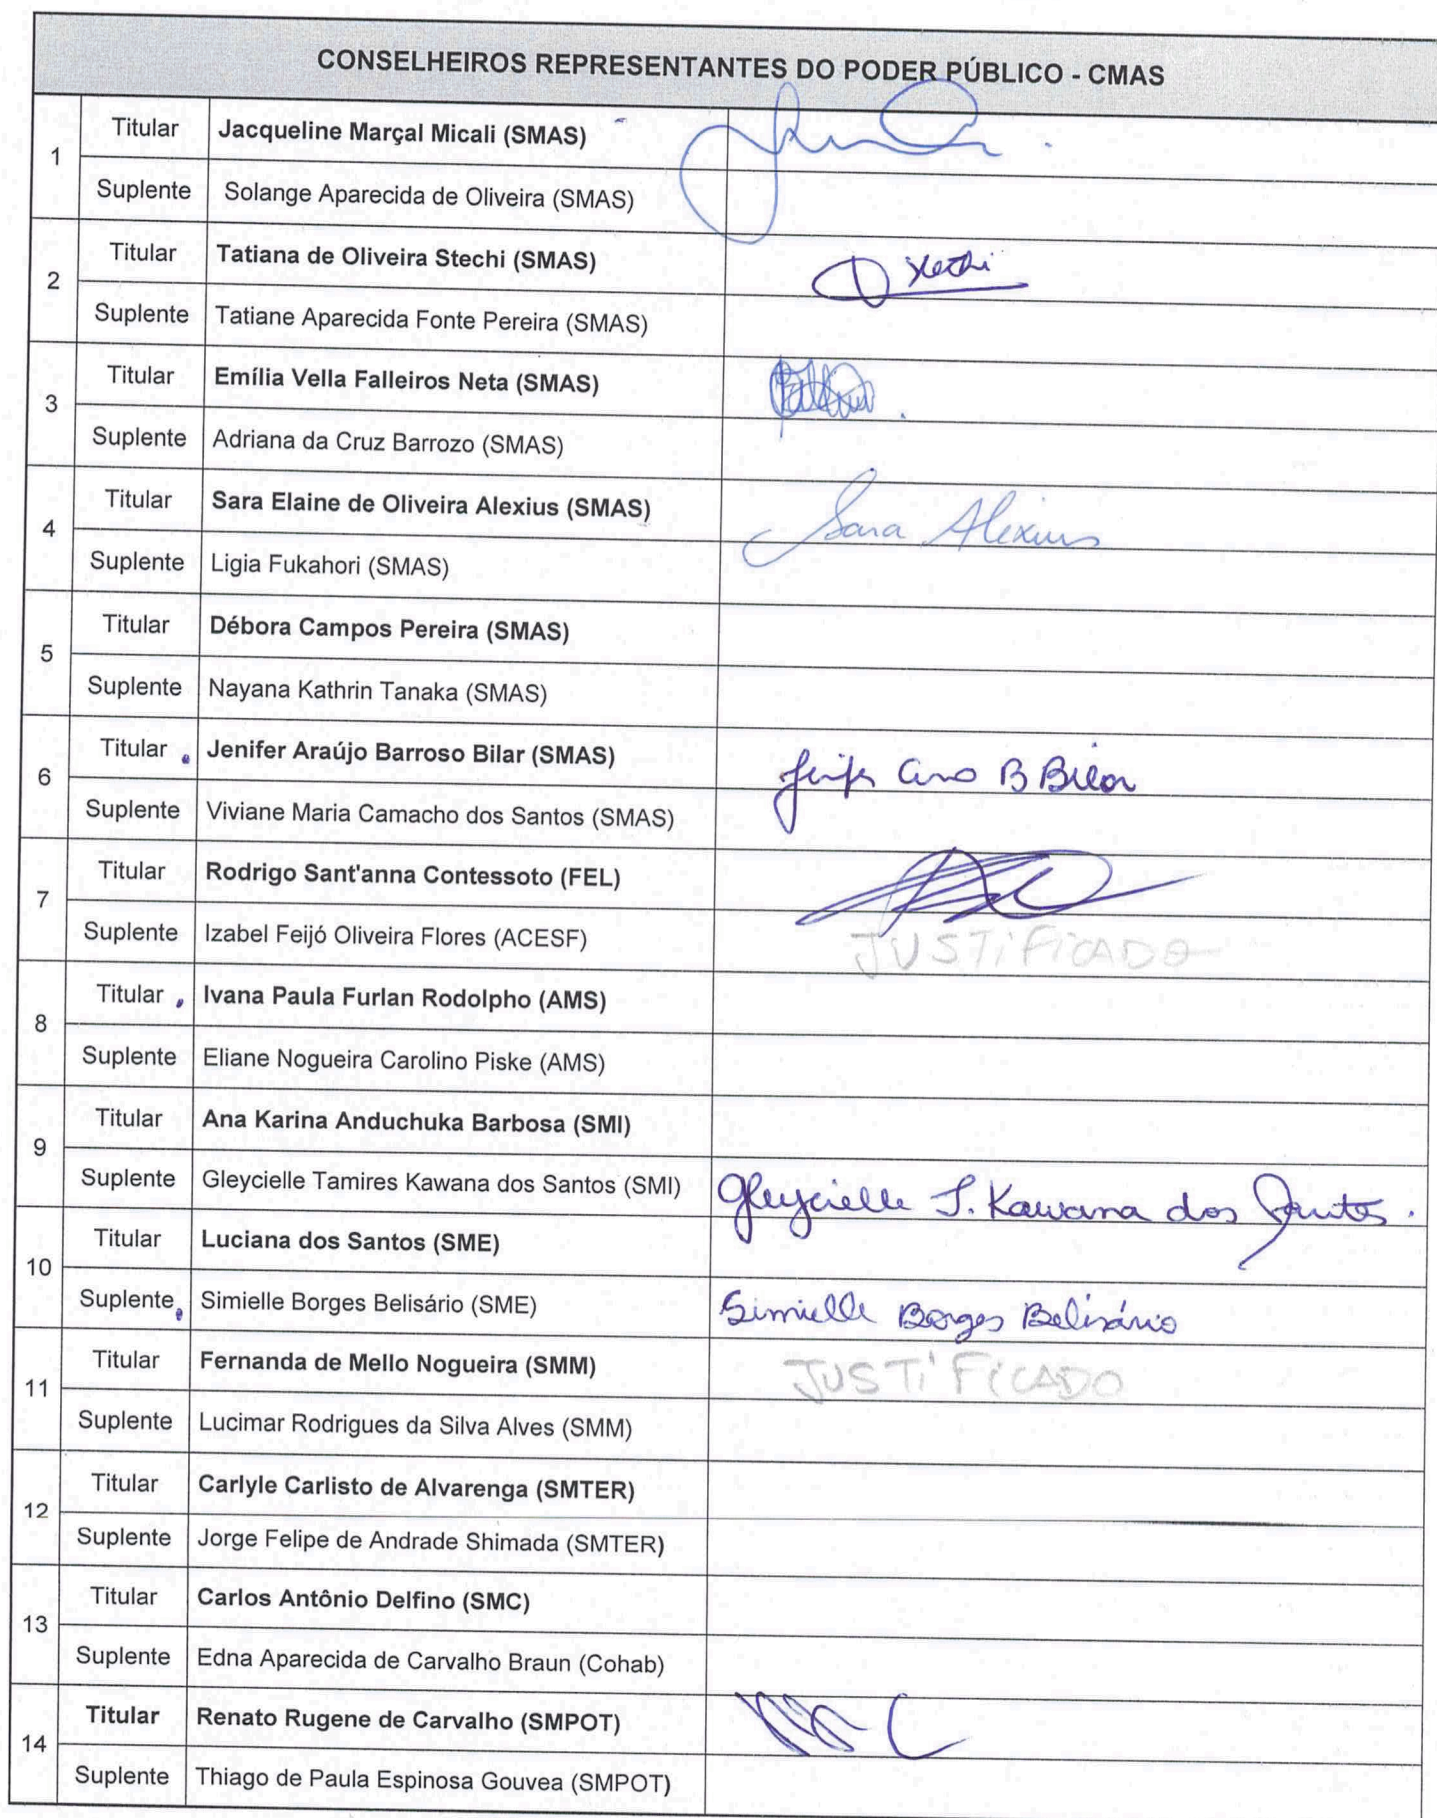 CONSELHEIROS REPRESENTANTES DO PODER PÚBLICO - CMAS
1
Titular Jacqueline Marçal Micali (SMAS)
Suplente Solange Aparecida de Oliveira (SMAS)
2
Titular Tatiana de Oliveira Stechi (SMAS) Stechi
Suplente Tatiane Aparecida Fonte Pereira (SMAS)
3
Titular Emília Vella Falleiros Neta (SMAS)
Suplente Adriana da Cruz Barrozo (SMAS)
4
Titular Sara Elaine de Oliveira Alexius (SMAS) Sara Alexius
Suplente Ligia Fukahori (SMAS)
5
Titular Débora Campos Pereira (SMAS)
Suplente Nayana Kathrin Tanaka (SMAS)
6
Titular Jenifer Araújo Barroso Bilar (SMAS) B Bilar
Suplente Viviane Maria Camacho dos Santos (SMAS)
7
Titular Rodrigo Sant'anna Contessoto (FEL)
Suplente Izabel Feijó Oliveira Flores (ACESF) JUSTIFICADO
8
Titular Ivana Paula Furlan Rodolpho (AMS)
Suplente Eliane Nogueira Carolino Piske (AMS)
9
Titular Ana Karina Anduchuka Barbosa (SMI)
Suplente Gleycielle Tamires Kawana dos Santos (SMI) Gleycielle T. Kawana dos Santos.
10
Titular Luciana dos Santos (SME)
Suplente Simielle Borges Belisário (SME) Simielle Borges Belisário
11
Titular Fernanda de Mello Nogueira (SMM) JUSTIFICADO
Suplente Lucimar Rodrigues da Silva Alves (SMM)
12
Titular Carlyle Carlisto de Alvarenga (SMTER)
Suplente Jorge Felipe de Andrade Shimada (SMTER)
13
Titular Carlos Antônio Delfino (SMC)
Suplente Edna Aparecida de Carvalho Braun (Cohab)
14
Titular Renato Rugene de Carvalho (SMPOT)
Suplente Thiago de Paula Espinosa Gouvea (SMPOT)